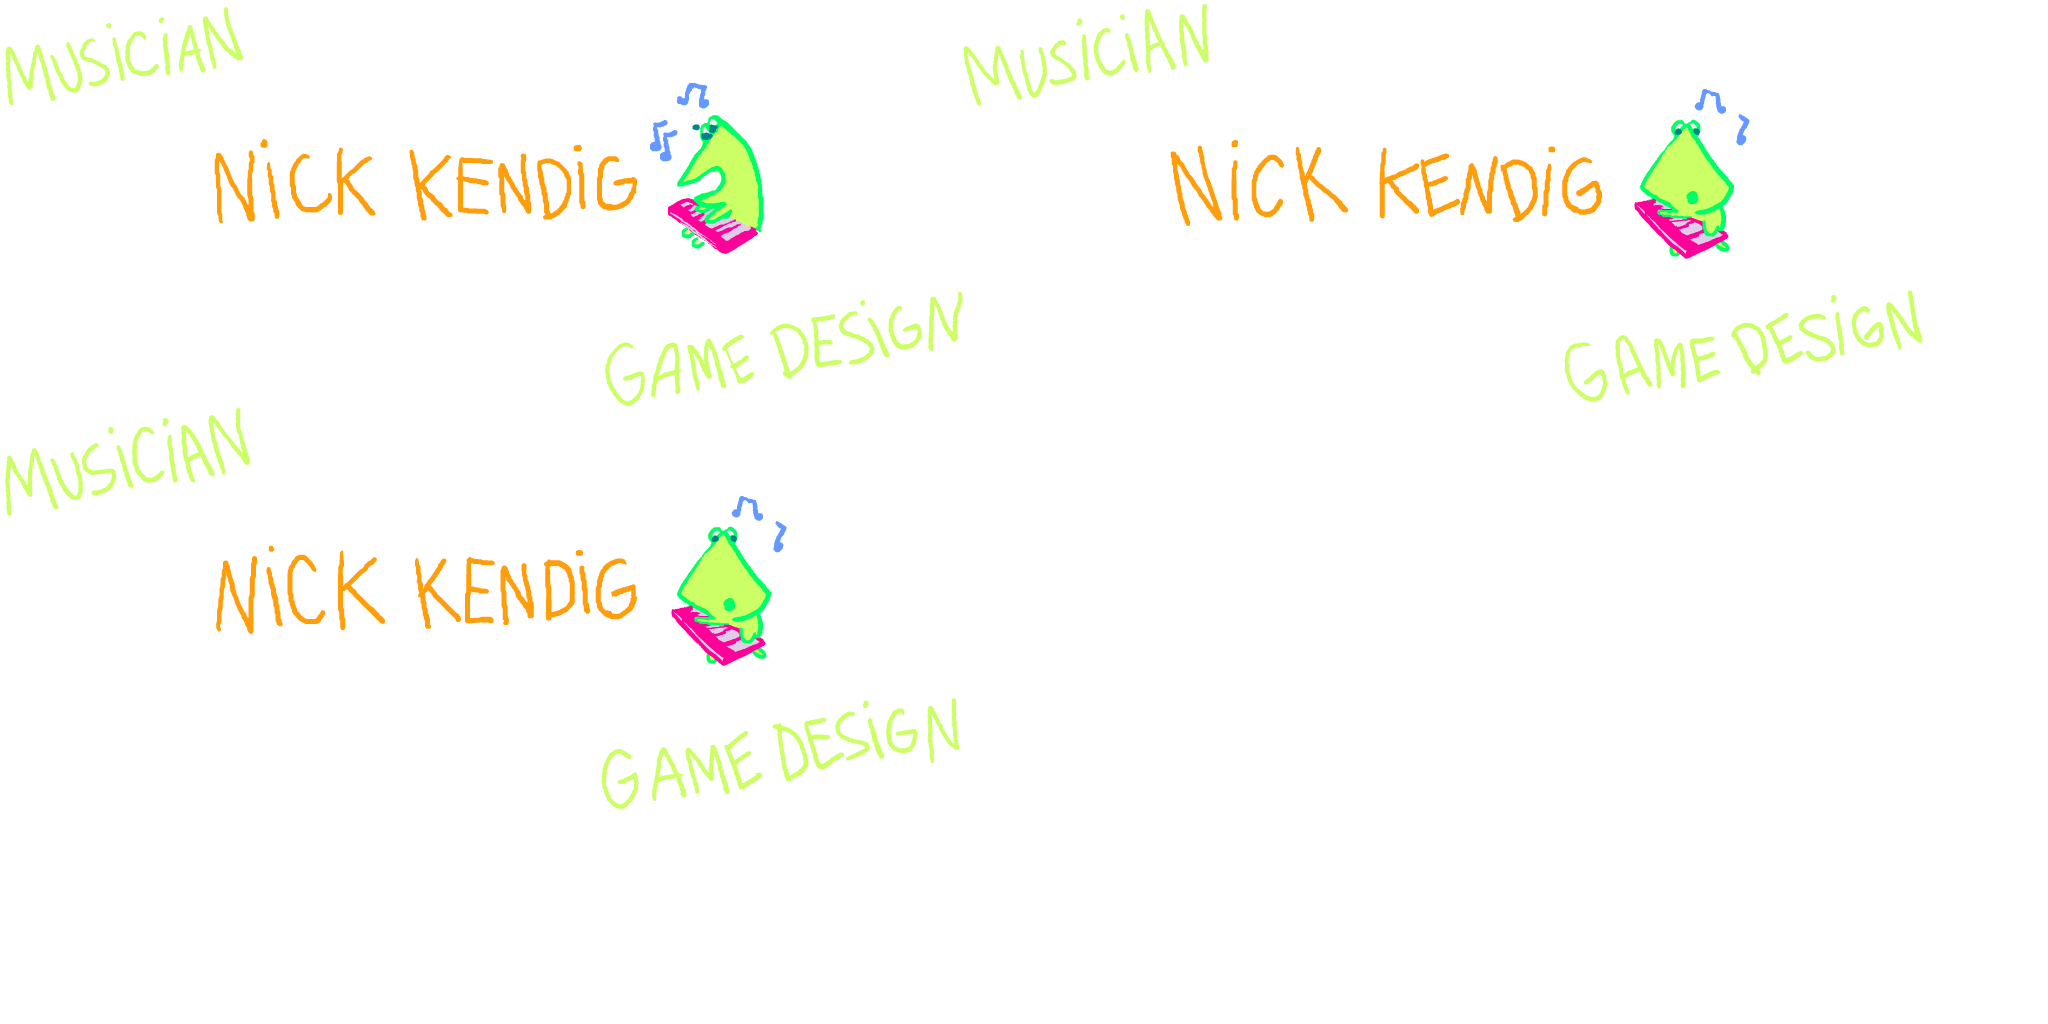 MUSiCiAN
NiCK KENDiG
GAME DESiGN
MUSiCiAN
NiCK KENDiG
GAME DESiGN
MUSiCiAN
NiCK KENDiG
GAME DESiGN